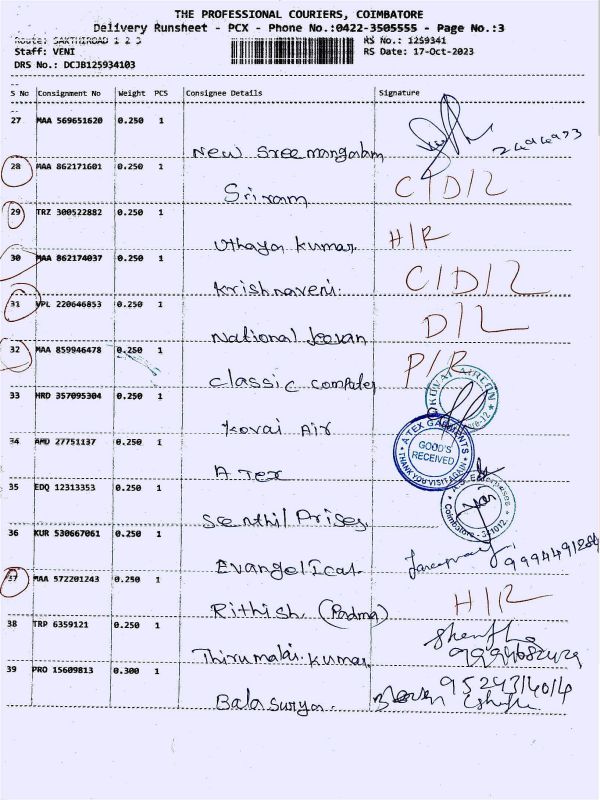 THE PROFESSIONAL COURIERS, COIMBATORE
Delivery Runsheet - PCX - Phone No.:0422-3505555 - Page No.:3
Route: SAKTHIROAD 1 2 3 RS No.: 1259341
Staff: VENI RS Date: 17-Oct-2023
DRS No.: DCJB125934103
S No Consignment No Weight PCS Consignee Details Signature
27 MAA 569651620 0.250 1
New Sree mangalam
28 MAA 862171601 0.250 1
Sriram C/D/L
29 TRZ 300522882 0.250 1
Uthaya kumar H/R
30 MAA 862174037 0.250 1
Krishnaveni. C/D/L
31 VPL 220646853 0.250 1
National Jeevan D/L
32 MAA 859946478 0.250 1 P/R
Classic computer
33 HRD 357095304 0.250 1
Kovai Air
34 AMD 27751137 0.250 1
A TEX GARMENTS
GOOD'S
RECEIVED
THANK YOU VISIT AGAIN
A Tex
35 EDQ 12313353 0.250 1
Coimbatore
Senthil Prises
36 KUR 530667061 0.250 1
Evangelical
37 MAA 572201243 0.250 1
Rithish (Padma) H/R
38 TRP 6359121 0.250 1
Thirumalai kumar
39 PRO 15609813 0.300 1
Balasurya.